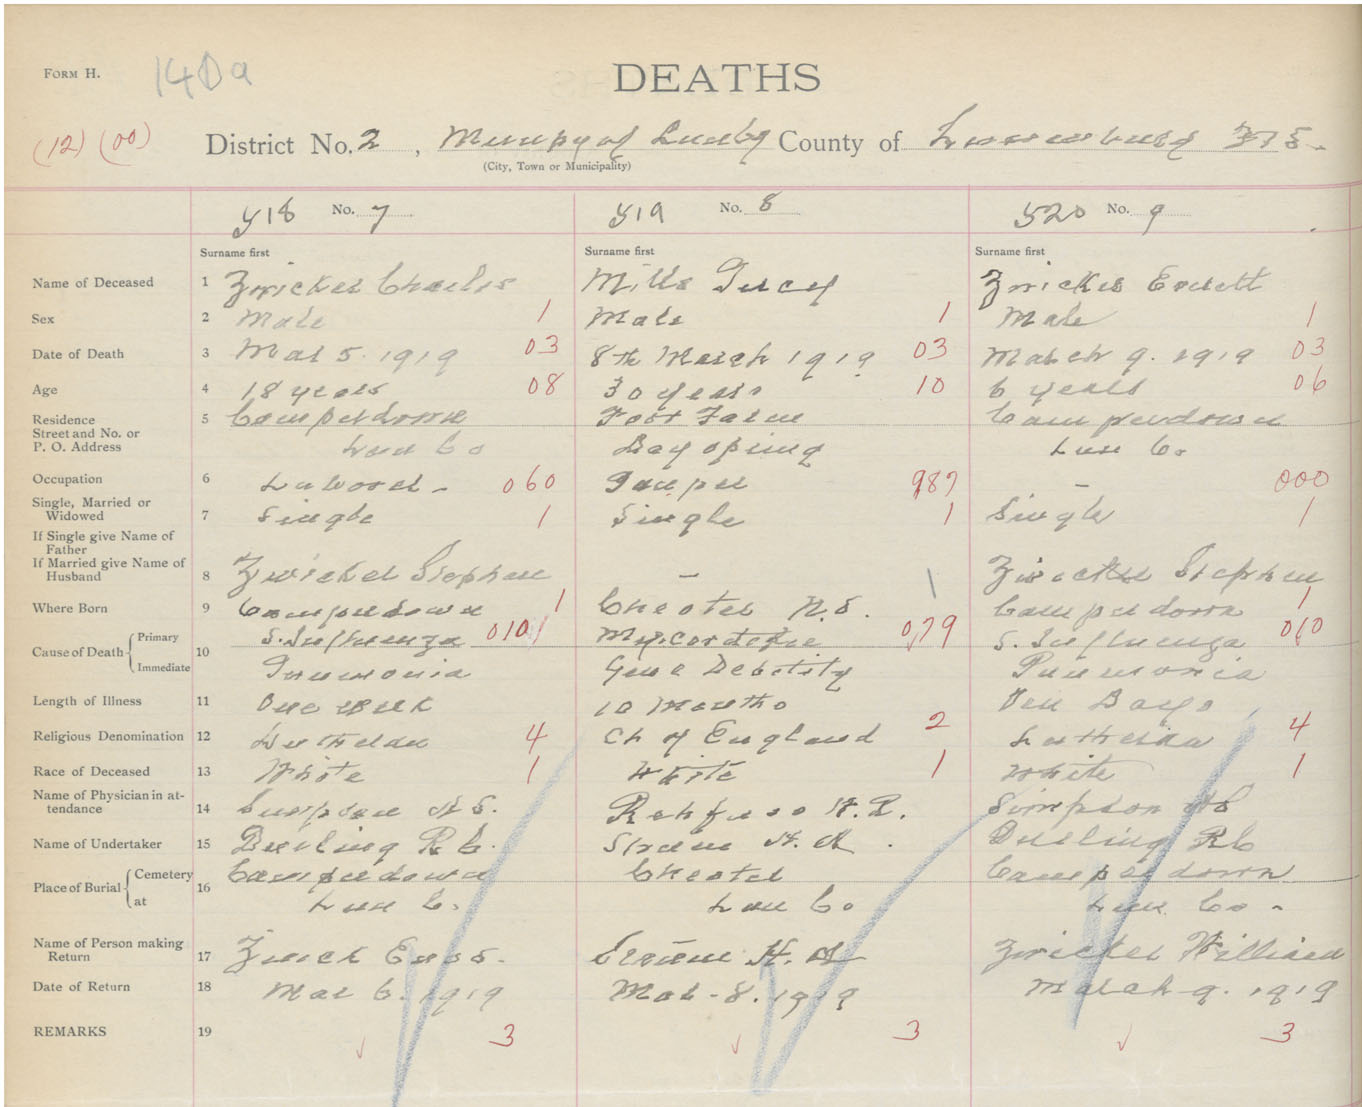 FORM H.
140a
DEATHS
(12) (00)
District No. 2, Muncpy of Lunbg County of Lunenburg N.S.
(City, Town or Municipality)
518 No. 7 519 No. 8 520 No. 9
Surname first Surname first Surname first
Name of Deceased 1 Zwicker Charles Mills Zwicker Everett
Sex 2 Male 1 Male 1 Male 1
Date of Death 3 Mar 5. 1919 03 8th March 1919 03 March 9. 1919 03
Age 4 18 years 08 30 years 10 6 years 06
Residence 5 Camperdown Poor Farm Camperdown
Street and No. or
P. O. Address Lun Co Lun Co.
Occupation 6 Laborer - 060 Pauper 987 - 000
Single, Married or
Widowed 7 Single 1 Single 1 Single 1
If Single give Name of
Father
If Married give Name of
Husband 8 Zwicker Stephen - Zwicker Stephen
Where Born 9 Camperdown 1 Chester N.S. 1 Camperdown 1
Cause of Death Primary 10 S. Influenza 010 079 S. Influenza 010
Immediate Pneumonia Gene Debility Pneumonia
Length of Illness 11 One week 10 Months Ten Days
Religious Denomination 12 Lutheran 4 Ch of England 2 Lutheran 4
Race of Deceased 13 White 1 White 1 White 1
Name of Physician in at-
tendance 14 Simpson H S. Rehfuss W. R. Simpson H S
Name of Undertaker 15 R C. H. A. R C
Place of Burial Cemetery 16 Camperdown Chester Camperdown
at Lun C. Lun Co Lun Co.
Name of Person making
Return 17 H. A Zwicker William
Date of Return 18 Mar 6. 1919 Mar - 8. 1919 March 9. 1919
REMARKS 19 3 3 3